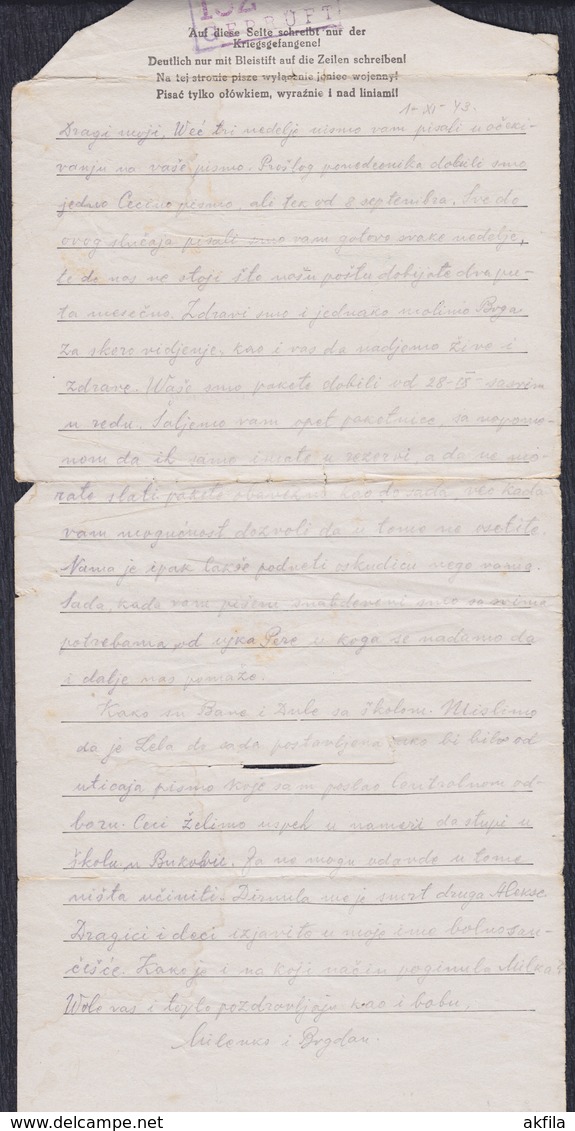 132
GEPRÜFT
Auf diese Seite schreibt nur der
Kriegsgefangene!
Deutlich nur mit Bleistift auf die Zeilen schreiben!
Na tej stronie pisze wyłącznie jeniec wojenny!
Pisać tylko ołówkiem, wyraźnie i nad liniami!
1-XI-43.
Dragi moji, Već tri nedelje nismo vam pisali u očeki-
vanju na vaše pismo. Prošlog ponedeonika dobili smo
jedno Cecino pismo, ali tek od 8 septembra. Sve do
ovog slučaja pisali smo vam gotovo svake nedelje,
te do nas ne stoji što našu poštu dobijate dva pu-
ta mesečno. Zdravi smo i jednako molimo Boga
za skoro vidjenje kao i vas da nadjemo žive i
zdrave. Vaše smo pakete dobili od 28-IX- sasvim
u redu. Šaljemo vam opet paketnice, sa napome-
nom da ih samo imate u rezervi, a da ne mo-
rate slati pakete obavezno kao do sada, već kada
vam mogućnost dozvoli da u tome ne osetite.
Nama je ipak lakše podneti oskudicu nego vama.
Sada, kada vam pišem snabdeveni smo sa svima
potrebama od ujka Pere u koga se nadamo da
i dalje nas pomaže.
Kako su Bane i Zule sa školom. Mislimo
da je Leba do sada postavljena kako bi bilo od
uticaja pismo koje sam poslao Centralnom od-
boru. Ceci želimo uspeh u nameri da stupi u
školu u Bukovu. Ja ne mogu odavde u tome
ništa učiniti. Dirnula me je smrt druga Alekse
Dragici i deci izjavite u moje ime bolno sau-
češće. Kako je i na koji način poginula Milka?
Vole vas i toplo pozdravljaju kao i babu,
Milenko i Bogdan.
akfila